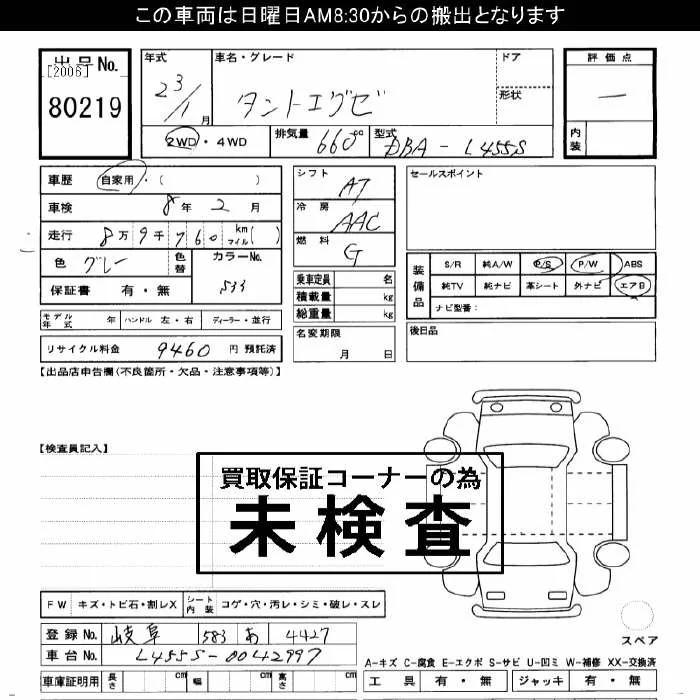 この車両は日曜日AM8:30からの搬出となります
出品No.
[2006]
80219
年式 23/1月
車名・グレード タントエグゼ
ドア
形状
2WD・4WD
排気量 660cc
型式 DBA-L455S
評価点
―
内装
車歴 自家用・( )
車検 8年2月
走行 8万9千760 km マイル( )
色 グレー 色替 カラーNo. S33
保証書 有・無
シフト AT
冷房 AAC
燃料 G
乗車定員 名
積載量 kg
総重量 kg
セールスポイント
装備品
S/R 純A/W P/S P/W ABS
純TV 純ナビ 革シート 外ナビ エアB
ナビ型番:
モデル年式 年 ハンドル 左・右 ディーラー・並行
名変期限 月 日
後日品
リサイクル料金 9460 円 預託済
【出品店申告欄(不良箇所・欠品・注意事項等)】
【検査員記入】
買取保証コーナーの為
未検査
FW キズ・トビ石・割レX シート内装 コゲ・穴・汚レ・シミ・破レ・スレ
登録No. 岐阜 583 あ 4427
車台No. L455S-0042997
スペア
A-キズ C-腐食 E-エクボ S-サビ U-凹ミ W-補修 XX-交換済
車庫証明用 長さ cm 幅 cm 高さ cm
工具 有・無 ジャッキ 有・無